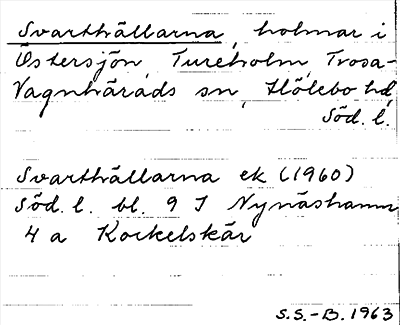 Svarthällarna, holmar i
Östersjön, Tureholm, Trosa-
Vagnhärads sn, Hölebo hd,
Söd. l.
Svarthällarna ek (1960)
Söd. l. bl. 9 I Nynäshamn
4 a Kockelskär
S.S.-B. 1963